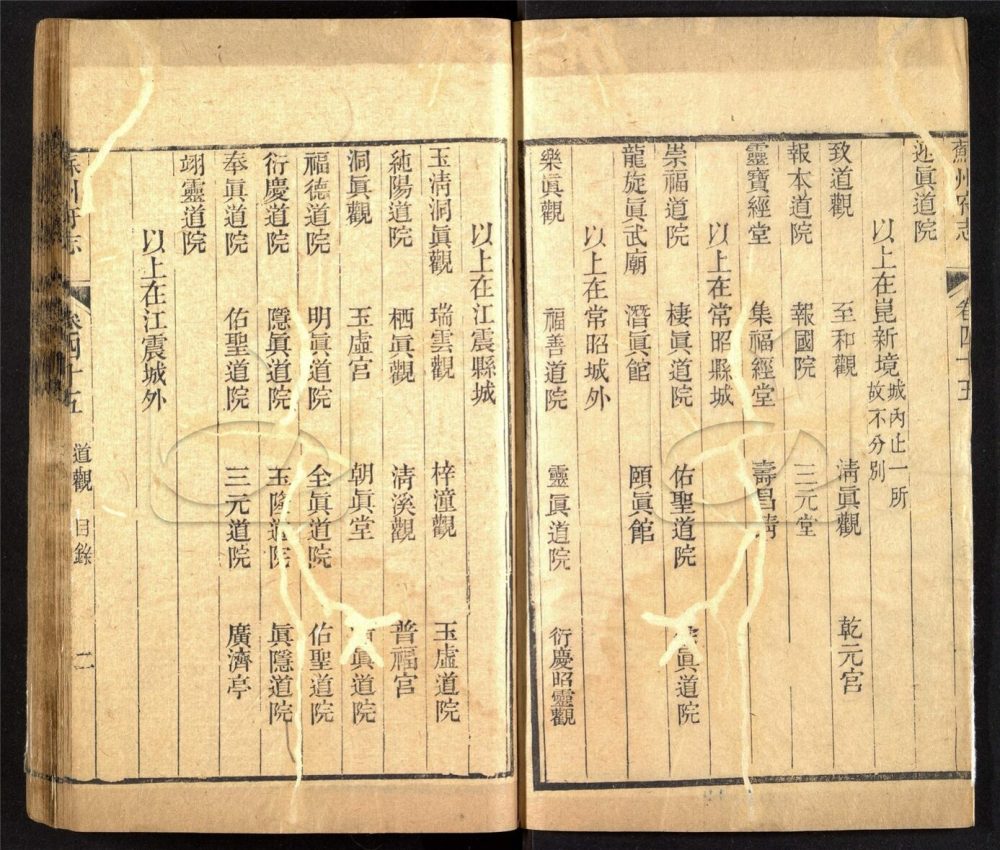 蘇州府志 卷四十五
眞道院
以上在崑新境 城內止一所
故不分別
致道觀 至和觀 淸眞觀 乾元宮
報本道院 報國院 三元堂
靈寶經堂 集福經堂 壽昌
以上在常昭縣城
崇福道院 棲眞道院 佑聖道院 眞道院
龍旋眞武廟 潛眞館 頤眞館
以上在常昭城外
樂眞觀 福善道院 靈眞道院 衍慶昭靈觀
以上在江震縣城
玉淸洞眞觀 瑞雲觀 梓潼觀 玉虛道院
純陽道院 栖眞觀 淸溪觀 普福宮
洞眞觀 玉虛宮 朝眞堂 眞道院
福德道院 明眞道院 全眞道院 佑聖道院
衍慶道院 隱眞道院 玉隆道院 眞隱道院
奉眞道院 佑聖道院 三元道院 廣濟亭
翊靈道院
以上在江震城外
蘇州府志 卷四十五 道觀 目錄 二